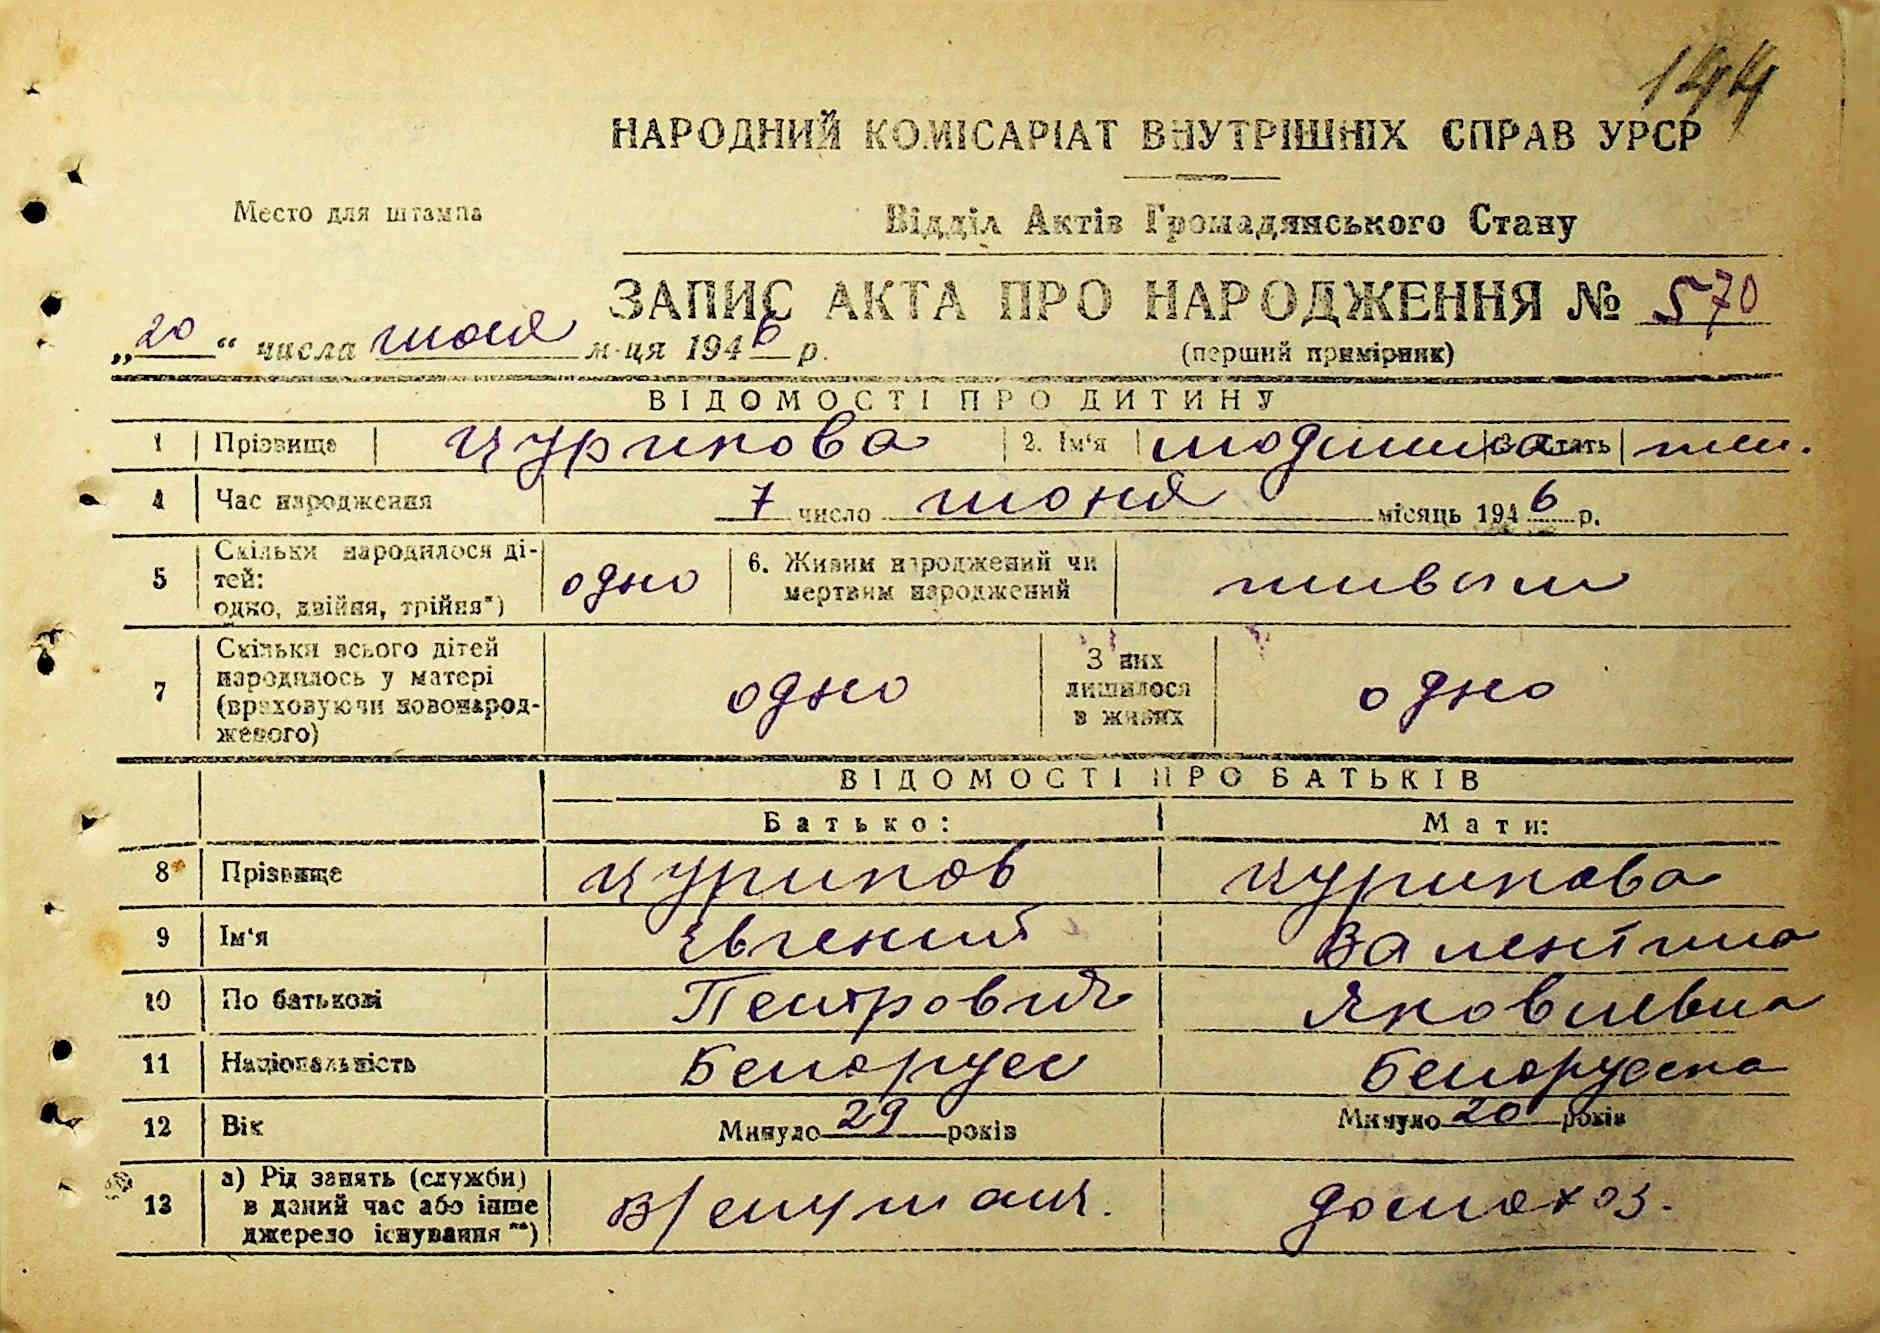 144
НАРОДНИЙ КОМІСАРІАТ ВНУТРІШНІХ СПРАВ УРСР
Место для штампа
Відділ Актів Громадянського Стану
ЗАПИС АКТА ПРО НАРОДЖЕННЯ № 570
„20“ числа июня м-ця 1946 р.
(перший примірник)
ВІДОМОСТІ ПРО ДИТИНУ
1 Прізвище Цурикова 2. Ім'я Людмила 3. Стать жен.
4 Час народження 7 число июня місяць 1946 р.
5 Скільки народилося дітей: одно, двійня, трійня*) одно 6. Живим народжений чи мертвим народжений живым
7 Скільки всього дітей народилось у матері (враховуючи новонародженого) одно З них лишилося в живих одно
ВІДОМОСТІ ПРО БАТЬКІВ
Батько: Мати:
8 Прізвище Цуриков Цурикова
9 Ім'я Евгений Валентина
10 По батькові Петрович Яковлевна
11 Національність Белорус Белоруска
12 Вік Минуло 29 років Минуло 20 років
13 а) Рід занять (служби) в даний час або інше джерело існування**) В/служащ. домохоз.